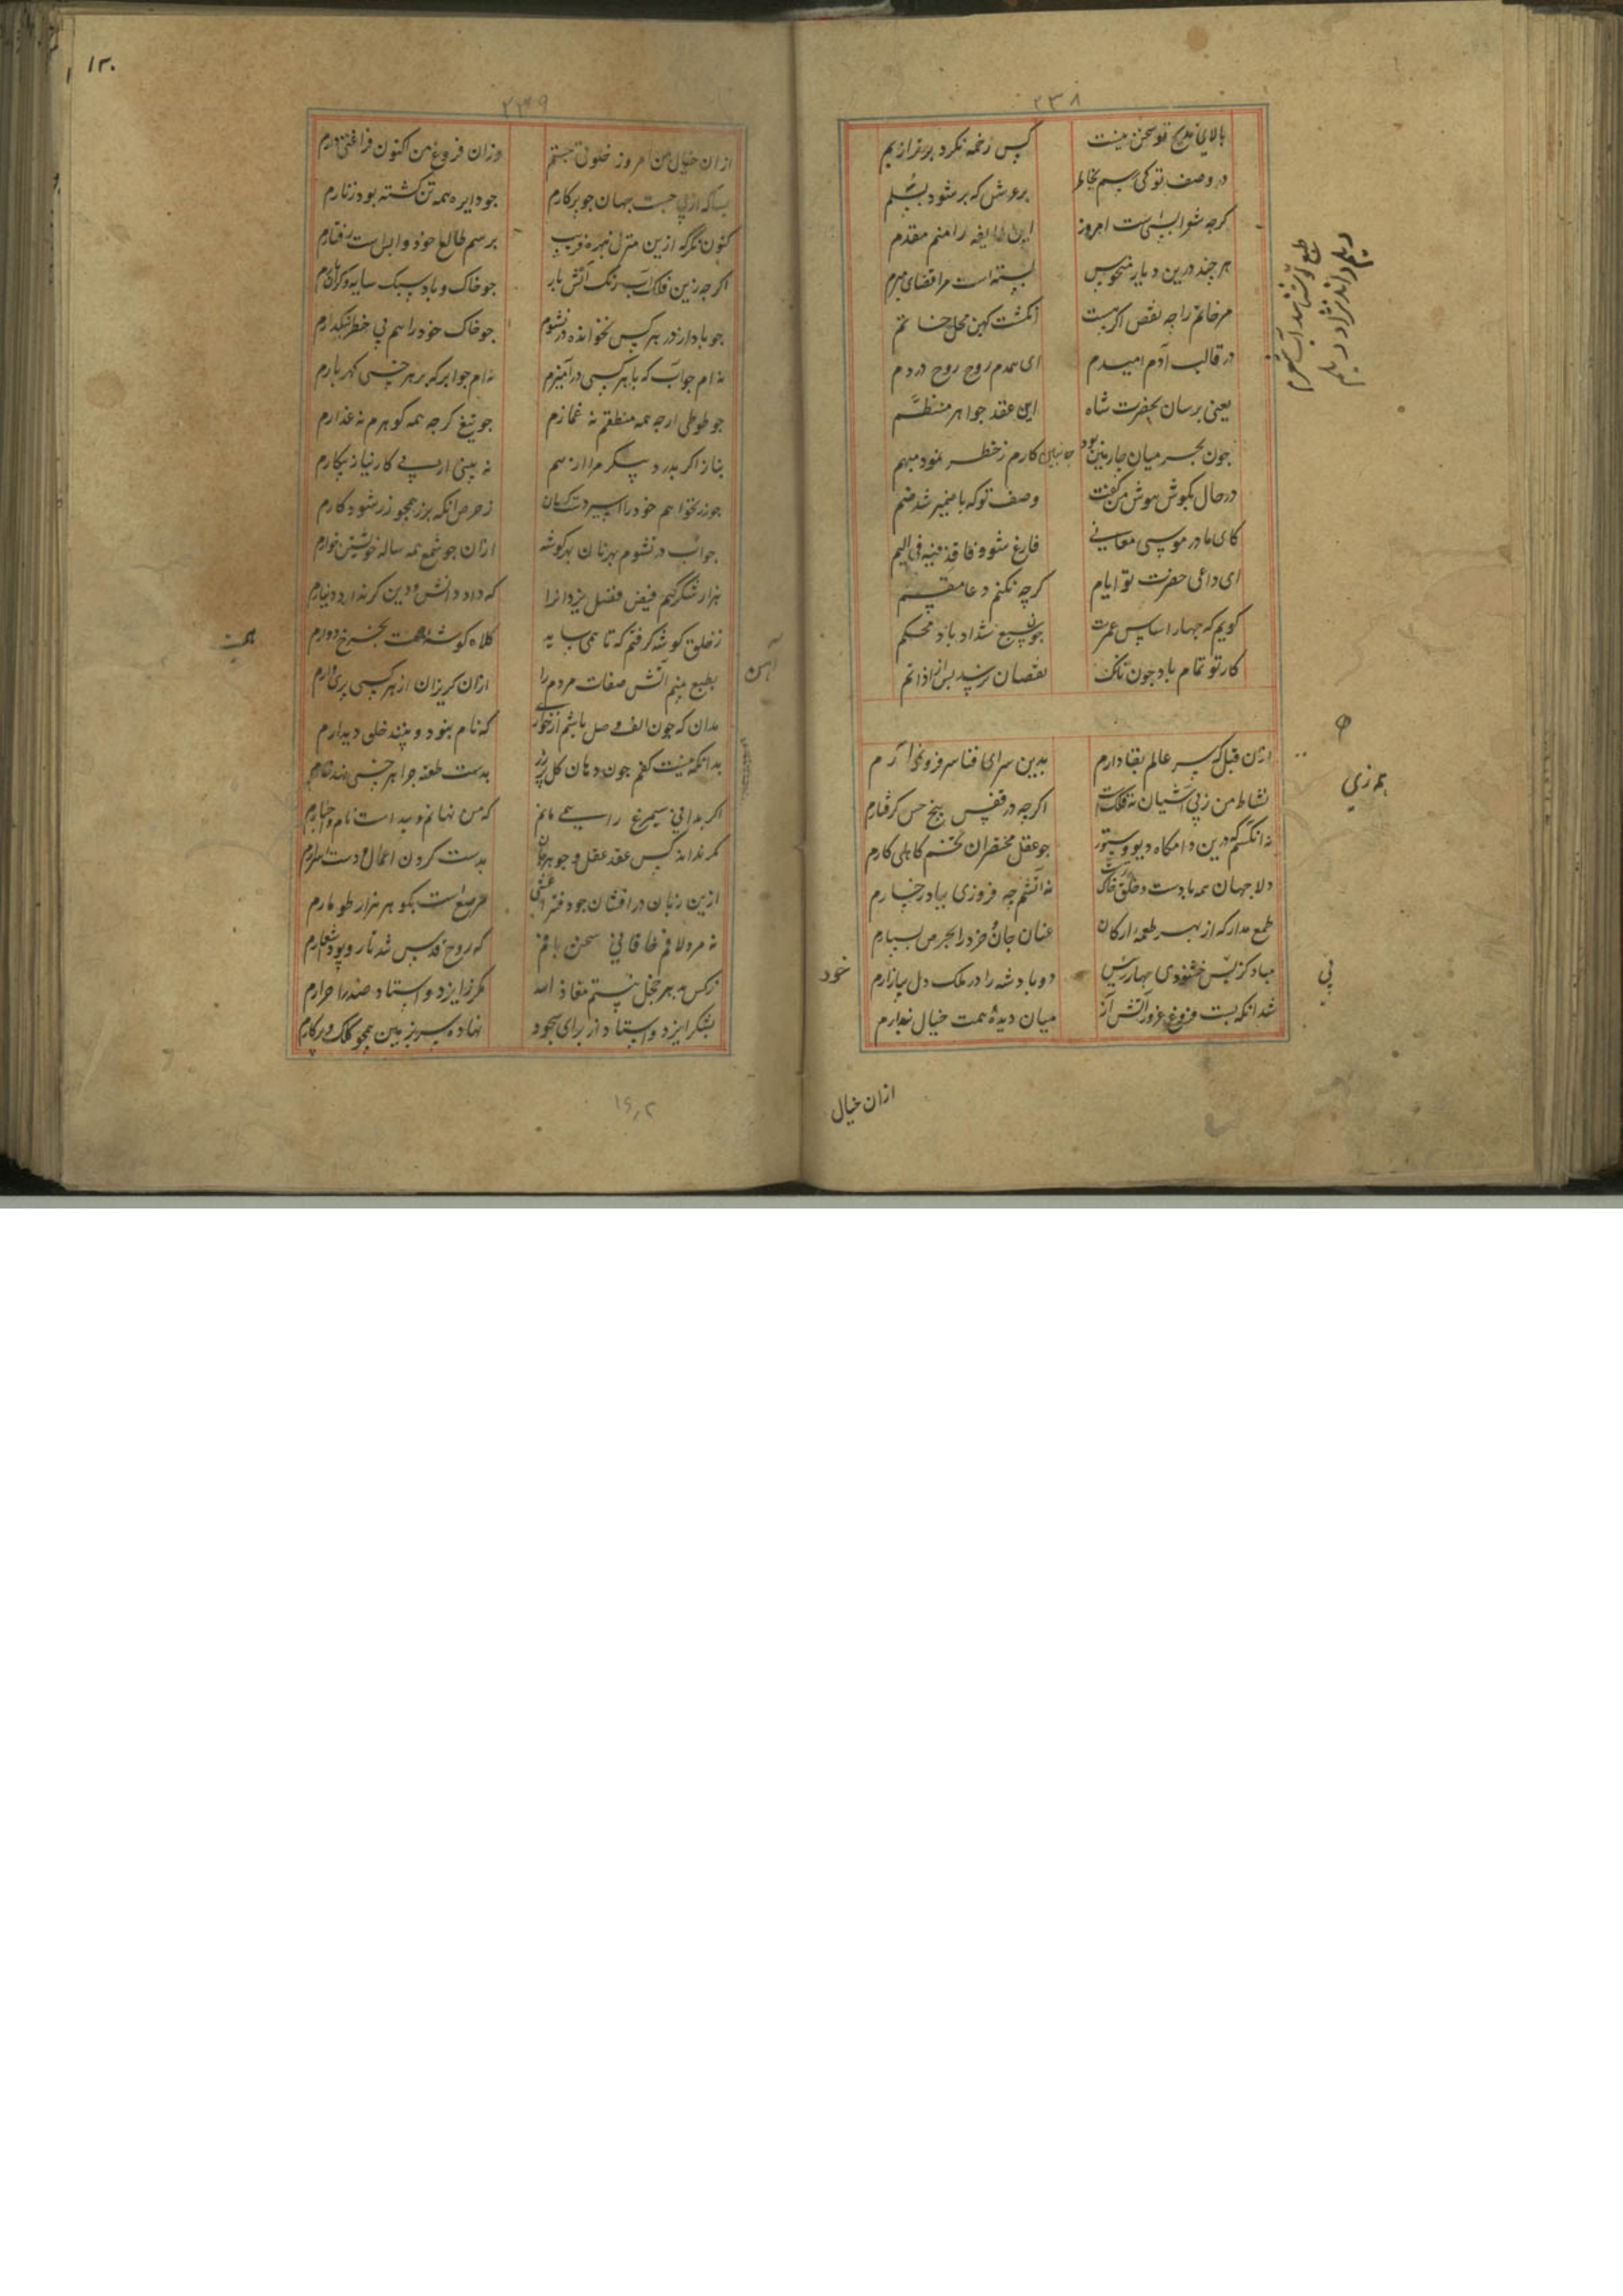 ۲۳۸
بالای مدیح تو سخن نیست کس زخمه نکرد برتر از بم
در وصف تو کی رسم بخاطر بر عرش که بر شود بسلم
کرچه شعرا بسی است امروز این طایفه را منم مقدم
هر چند درین دیار منحوس بسته است مرا قضای مبرم
مر خاتم را چه نقص اکر هست انکشت کهین محل خاتم
در قالب آدم امیدم ای همدم روح روح در دم
یعنی برسان بحضرت شاه این عقد جواهر منظم
چون بحر میان جار مین بود کارم ز خطر نمود مبهم
در حال بکوش هوش من کفت وصف تو که با ضمیر شد ضم
کای مادر موسی معانی فارغ شو و فاقذفیه فی الیم
ای داعی حضرت تو ایام کرچه نکنم دعا مقسم
کویم که جهار اساس عمرت جون سبع شداد باد محکم
کار تو تمام باد جون تانک نقصان نرسد بس از اذا تم
طبع تو شناسد آب شعرم
دیلم داند نژاد دیلم
ازان قبل که سر عالم بقا دارم بدین سرای فنا سر فرو نمی آرم
نشاط من ز پی آشیان نه فلک است اکرچه در قفس پنج حس کرفتارم
نه انکسم که درین دامکاه دیو و ستور جو عقل مختصران تخم کاهلی کارم
دلا جهان همه بادست و خلق خاک نه آتشم چه فروزی بباد رخسارم
طمع مدار که از بهر طعمه ارکان عنان جان خرد را بحرص بسپارم
مباد کز پس خشنودی جهار رئیس دو پادشه را در ملک دل بیازارم
شد انکه بست فروغ غرور آتش آز میان دیده همت خیال پندارم
همه زی
پی
خود
ازان خیال
۱۲۰
۲۳۹
ازان خیال من امروز خلوتی جستم وزان فروغ من اکنون فراغتی دارم
بسا که از پی جست جهان جو پرکارم جو دایره همه تن کشته بود زنارم
کنون نکر که ازین منزل نبهره فریب برسم طالع خود وابس است رفتارم
اکرچه زین فلک آب رنک آتش بار جو خاک و باد سبک سایه و کران بارم
جو باد از در هر کس نخوانده در نشوم جو خاک خود را هم بی خطر نینکارم
نه ام جو آب که با هر کسی در آمیزم نه ام جو ابر که بر هر خسی کهر بارم
جو طوطی ارچه همه منطقم نه غمازم جو تیغ کرچه همه کوهرم نه غدارم
بناز اکر بدرد پیکر مرا از هم نه بینی از پی کار نیاز پیکارم
جو زر نخواهم خود را اسیر دست کسان ز حرص انکه بزر همجو زر شود کارم
جو آب در نشوم بهر نان بهر کوشه ازان جو شمع همه ساله خویشتن خوارم
هزار شکر کنم فیض فضل یزدانرا که داد دانش و دین کر نداد دینارم
ز خلق کوشه کرفتم که تا همی ساید کلاه کوشه همت بجرخ دوارم
بطبع بینم آتش صفات مردم را ازان کریزان از هر کسی پری وارم
مدان که جون الف وصل باشم از خواری که نام نبود و بینند خلق دیدارم
بدانکه نیست کفم جون دهان کل پر زر بدست طعنه جرا هر خسی نهد خارم
اکر بدانی سیمرغ را همی مانم که من نهانم و پیداست نام و اخبارم
کمر نداند کس عقد عقل و جوهر جان بدست کردن اعمال و دست اسرارم
ازین زبان در افشان جو دفتر اعشی مرصع است بکوهر هزار طومارم
نه مرد لافم خاقانی سخن بافم که روح قدس شد تار و پود اشعارم
ز کس بهر خجل نیستم معاذ الله مکر از ایزد و استاد صدر احرارم
بشکر ایزد و استاد از برای سجود نهاده سر بزمین همجو کلک و پرکارم
آهن
همت
۱۶٫۲